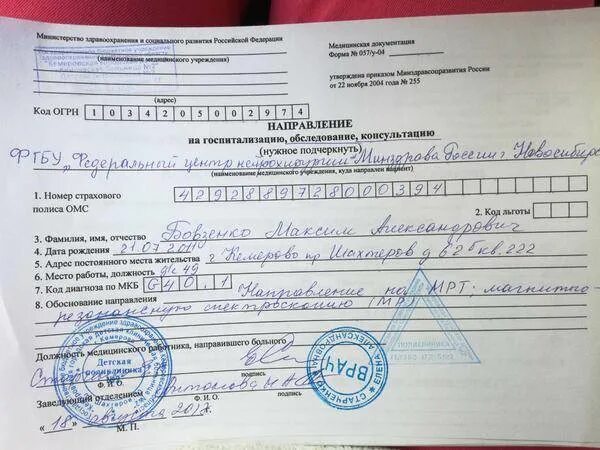 Министерство здравоохранения и социального развития Российской Федерации
Медицинская документация
Форма № 057/у-04
(наименование медицинского учреждения)
утверждена приказом Минздравсоцразвития России
от 22 ноября 2004 года № 255
(адрес)
Код ОГРН 1034205002974
НАПРАВЛЕНИЕ
на госпитализацию, обследование, консультацию
(нужное подчеркнуть)
ФГБУ "Федеральный центр нейрохирургии" Минздрава России г. Новосибирс
(наименование медицинского учреждения, куда направлен пациент)
1. Номер страхового полиса ОМС 4292889728000394
2. Код льготы
3. Фамилия, имя, отчество Бовзенко Максим Александрович
4. Дата рождения 21.07.2011
5. Адрес постоянного места жительства г. Кемерово пр Шахтеров д 62б кв. 222
6. Место работы, должность д/с 49
7. Код диагноза по МКБ G40.1
8. Обоснование направления Направление на МРТ; магнитно-
резонансную спектроскопию (МР)
Должность медицинского работника, направившего больного
Ф.И.О. подпись
Заведующий отделением Антонова Н.А.
Ф.И.О. подпись
"18" августа 2017г.
М. П.
Детская поликлиника
ВРАЧ
СТАРЧЕНКО ЕЛЕНА АЛЕКСАНДРОВНА